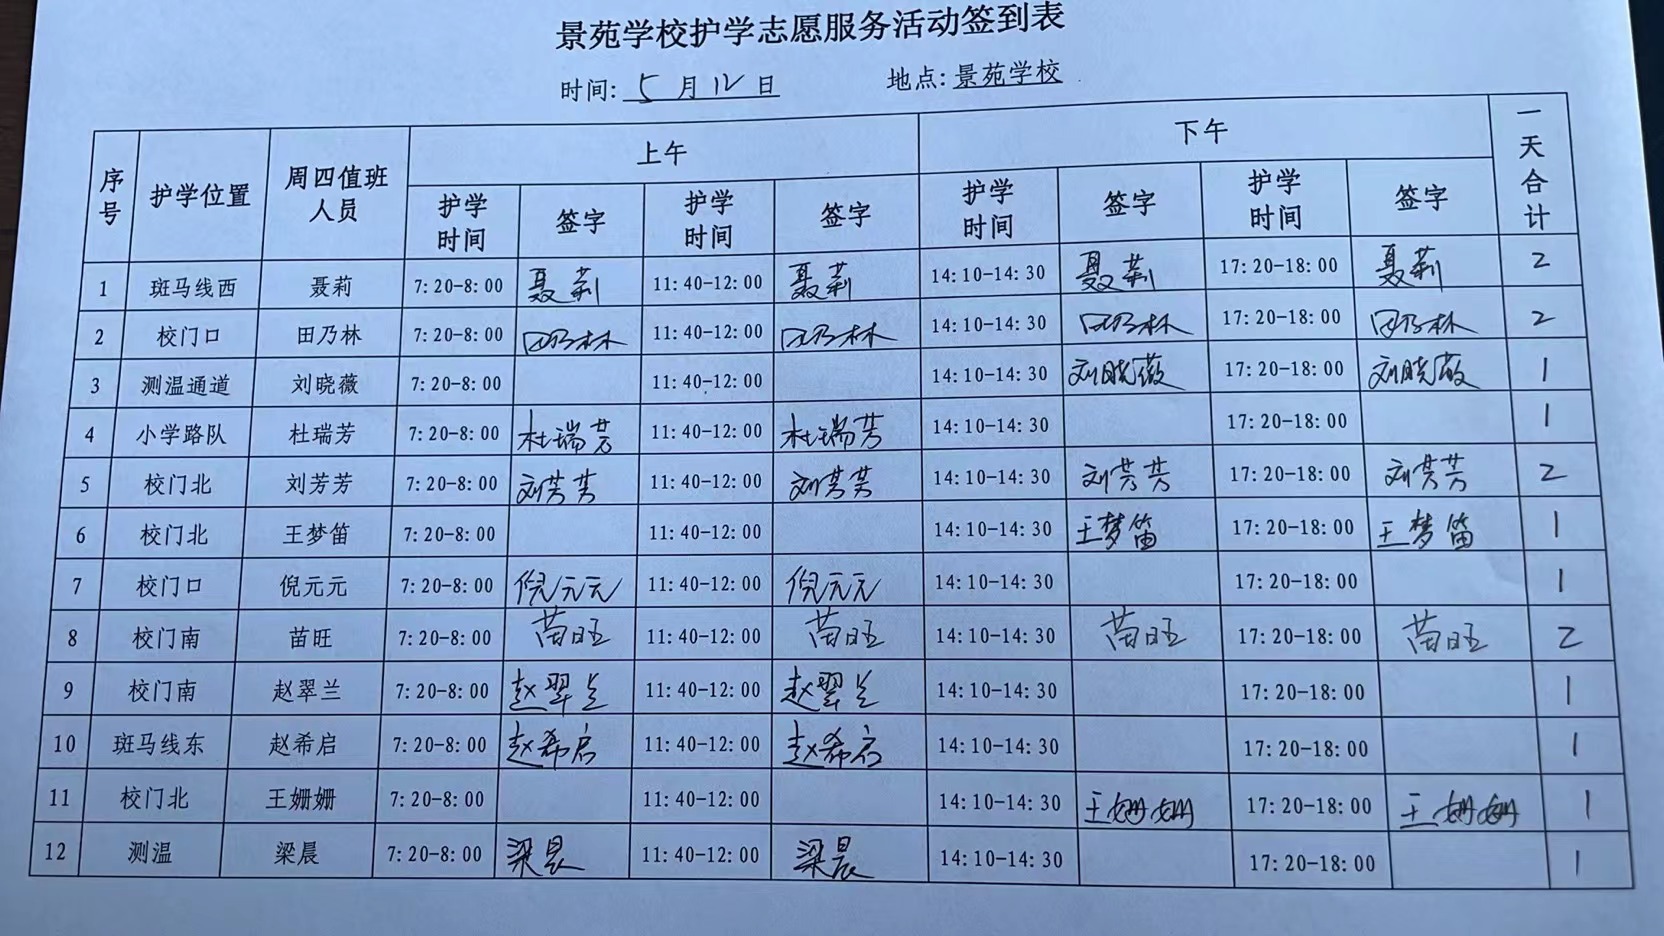 景苑学校护学志愿服务活动签到表
时间: 5 月 12 日 地点: 景苑学校
序号 护学位置 周四值班人员 上午 下午 一天合计
护学时间 签字 护学时间 签字 护学时间 签字 护学时间 签字
1 斑马线西 聂莉 7:20-8:00 聂莉 11:40-12:00 聂莉 14:10-14:30 聂莉 17:20-18:00 聂莉 2
2 校门口 田乃林 7:20-8:00 田乃林 11:40-12:00 田乃林 14:10-14:30 田乃林 17:20-18:00 田乃林 2
3 测温通道 刘晓薇 7:20-8:00 11:40-12:00 14:10-14:30 刘晓薇 17:20-18:00 刘晓薇 1
4 小学路队 杜瑞芳 7:20-8:00 杜瑞芳 11:40-12:00 杜瑞芳 14:10-14:30 17:20-18:00 1
5 校门北 刘芳芳 7:20-8:00 刘芳芳 11:40-12:00 刘芳芳 14:10-14:30 刘芳芳 17:20-18:00 刘芳芳 2
6 校门北 王梦笛 7:20-8:00 11:40-12:00 14:10-14:30 王梦笛 17:20-18:00 王梦笛 1
7 校门口 倪元元 7:20-8:00 倪元元 11:40-12:00 倪元元 14:10-14:30 17:20-18:00 1
8 校门南 苗旺 7:20-8:00 苗旺 11:40-12:00 苗旺 14:10-14:30 苗旺 17:20-18:00 苗旺 2
9 校门南 赵翠兰 7:20-8:00 赵翠兰 11:40-12:00 赵翠兰 14:10-14:30 17:20-18:00 1
10 斑马线东 赵希启 7:20-8:00 赵希启 11:40-12:00 赵希启 14:10-14:30 17:20-18:00 1
11 校门北 王姗姗 7:20-8:00 11:40-12:00 14:10-14:30 王姗姗 17:20-18:00 王姗姗 1
12 测温 梁晨 7:20-8:00 梁晨 11:40-12:00 梁晨 14:10-14:30 17:20-18:00 1